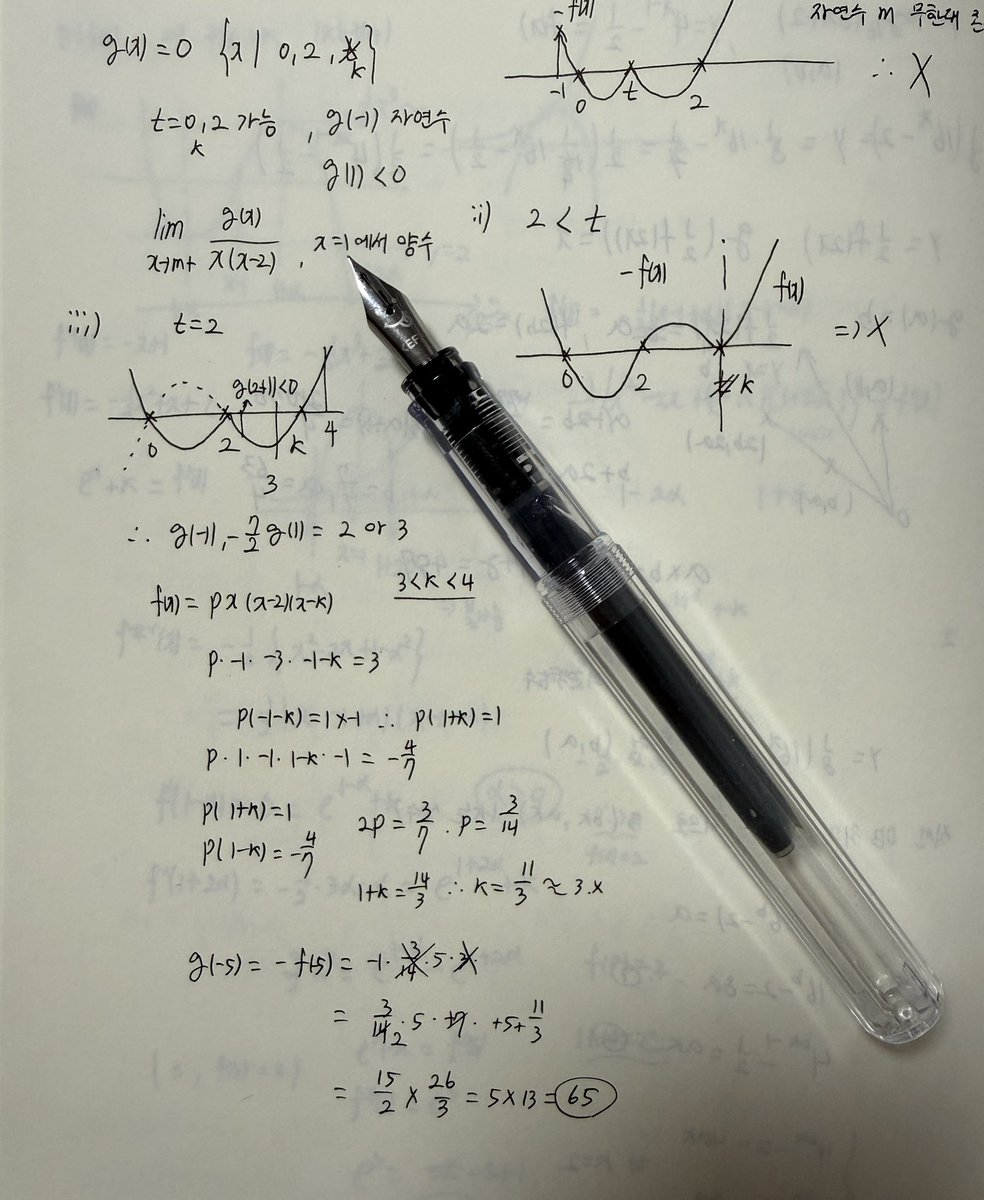 -f(x)
자연수 m 무한대
g(x)=0 {x| 0, 2, k}
-1 0 t 2
∴ X
t=0, 2 가능, g(-1) 자연수
k
g(1)<0
lim g(x)/x(x-2), x=1에서 양수
x→m+
ii) 2<t
-f(x) f(x)
0 2 k
⇒ X
iii) t=2
g(2+1)<0
0 2 k 4
3
EF
∴ g(-1), -7/2 g(1) = 2 or 3
f(x) = px(x-2)(x-k) 3<k<4
p·-1·-3·-1-k = 3
p(-1-k)=1×-1 ∴ p(1+k)=1
p·1·-1·1-k·-1 = -4/7
p(1+k)=1
p(1-k)=-4/7
2p=3/7. p=3/14
1+k=14/3 ∴ k=11/3 ≈ 3.x
g(-5) = -f(-5) = -1·3/14·5·
= 3/14·5· ·+5+11/3
2
= 15/2 × 26/3 = 5×13 = 65